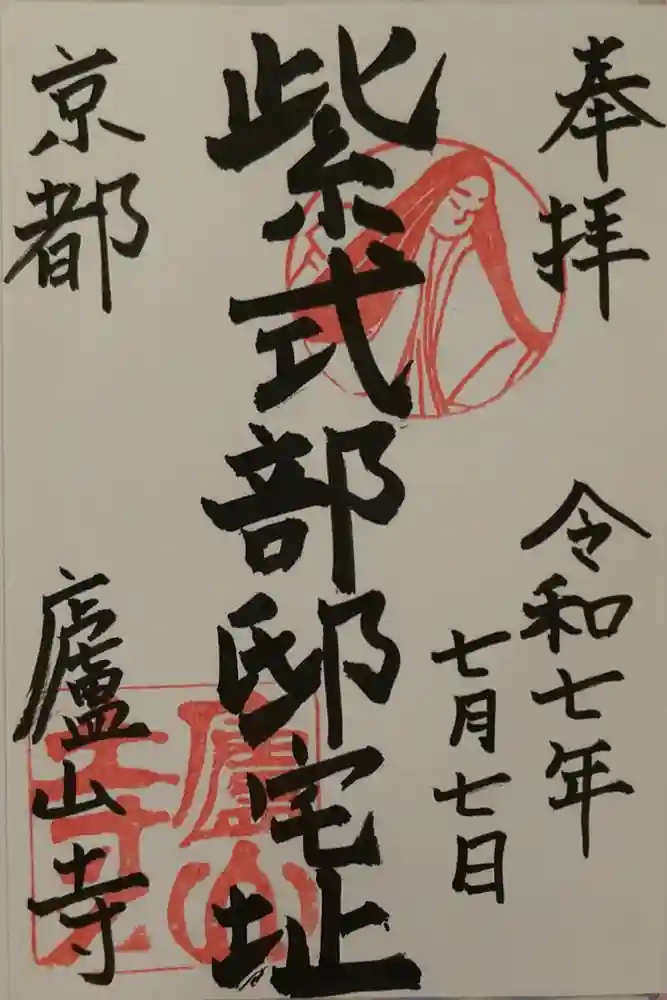 奉拝
令和七年
七月七日
紫式部邸宅址
京都
廬山寺
廬山寺